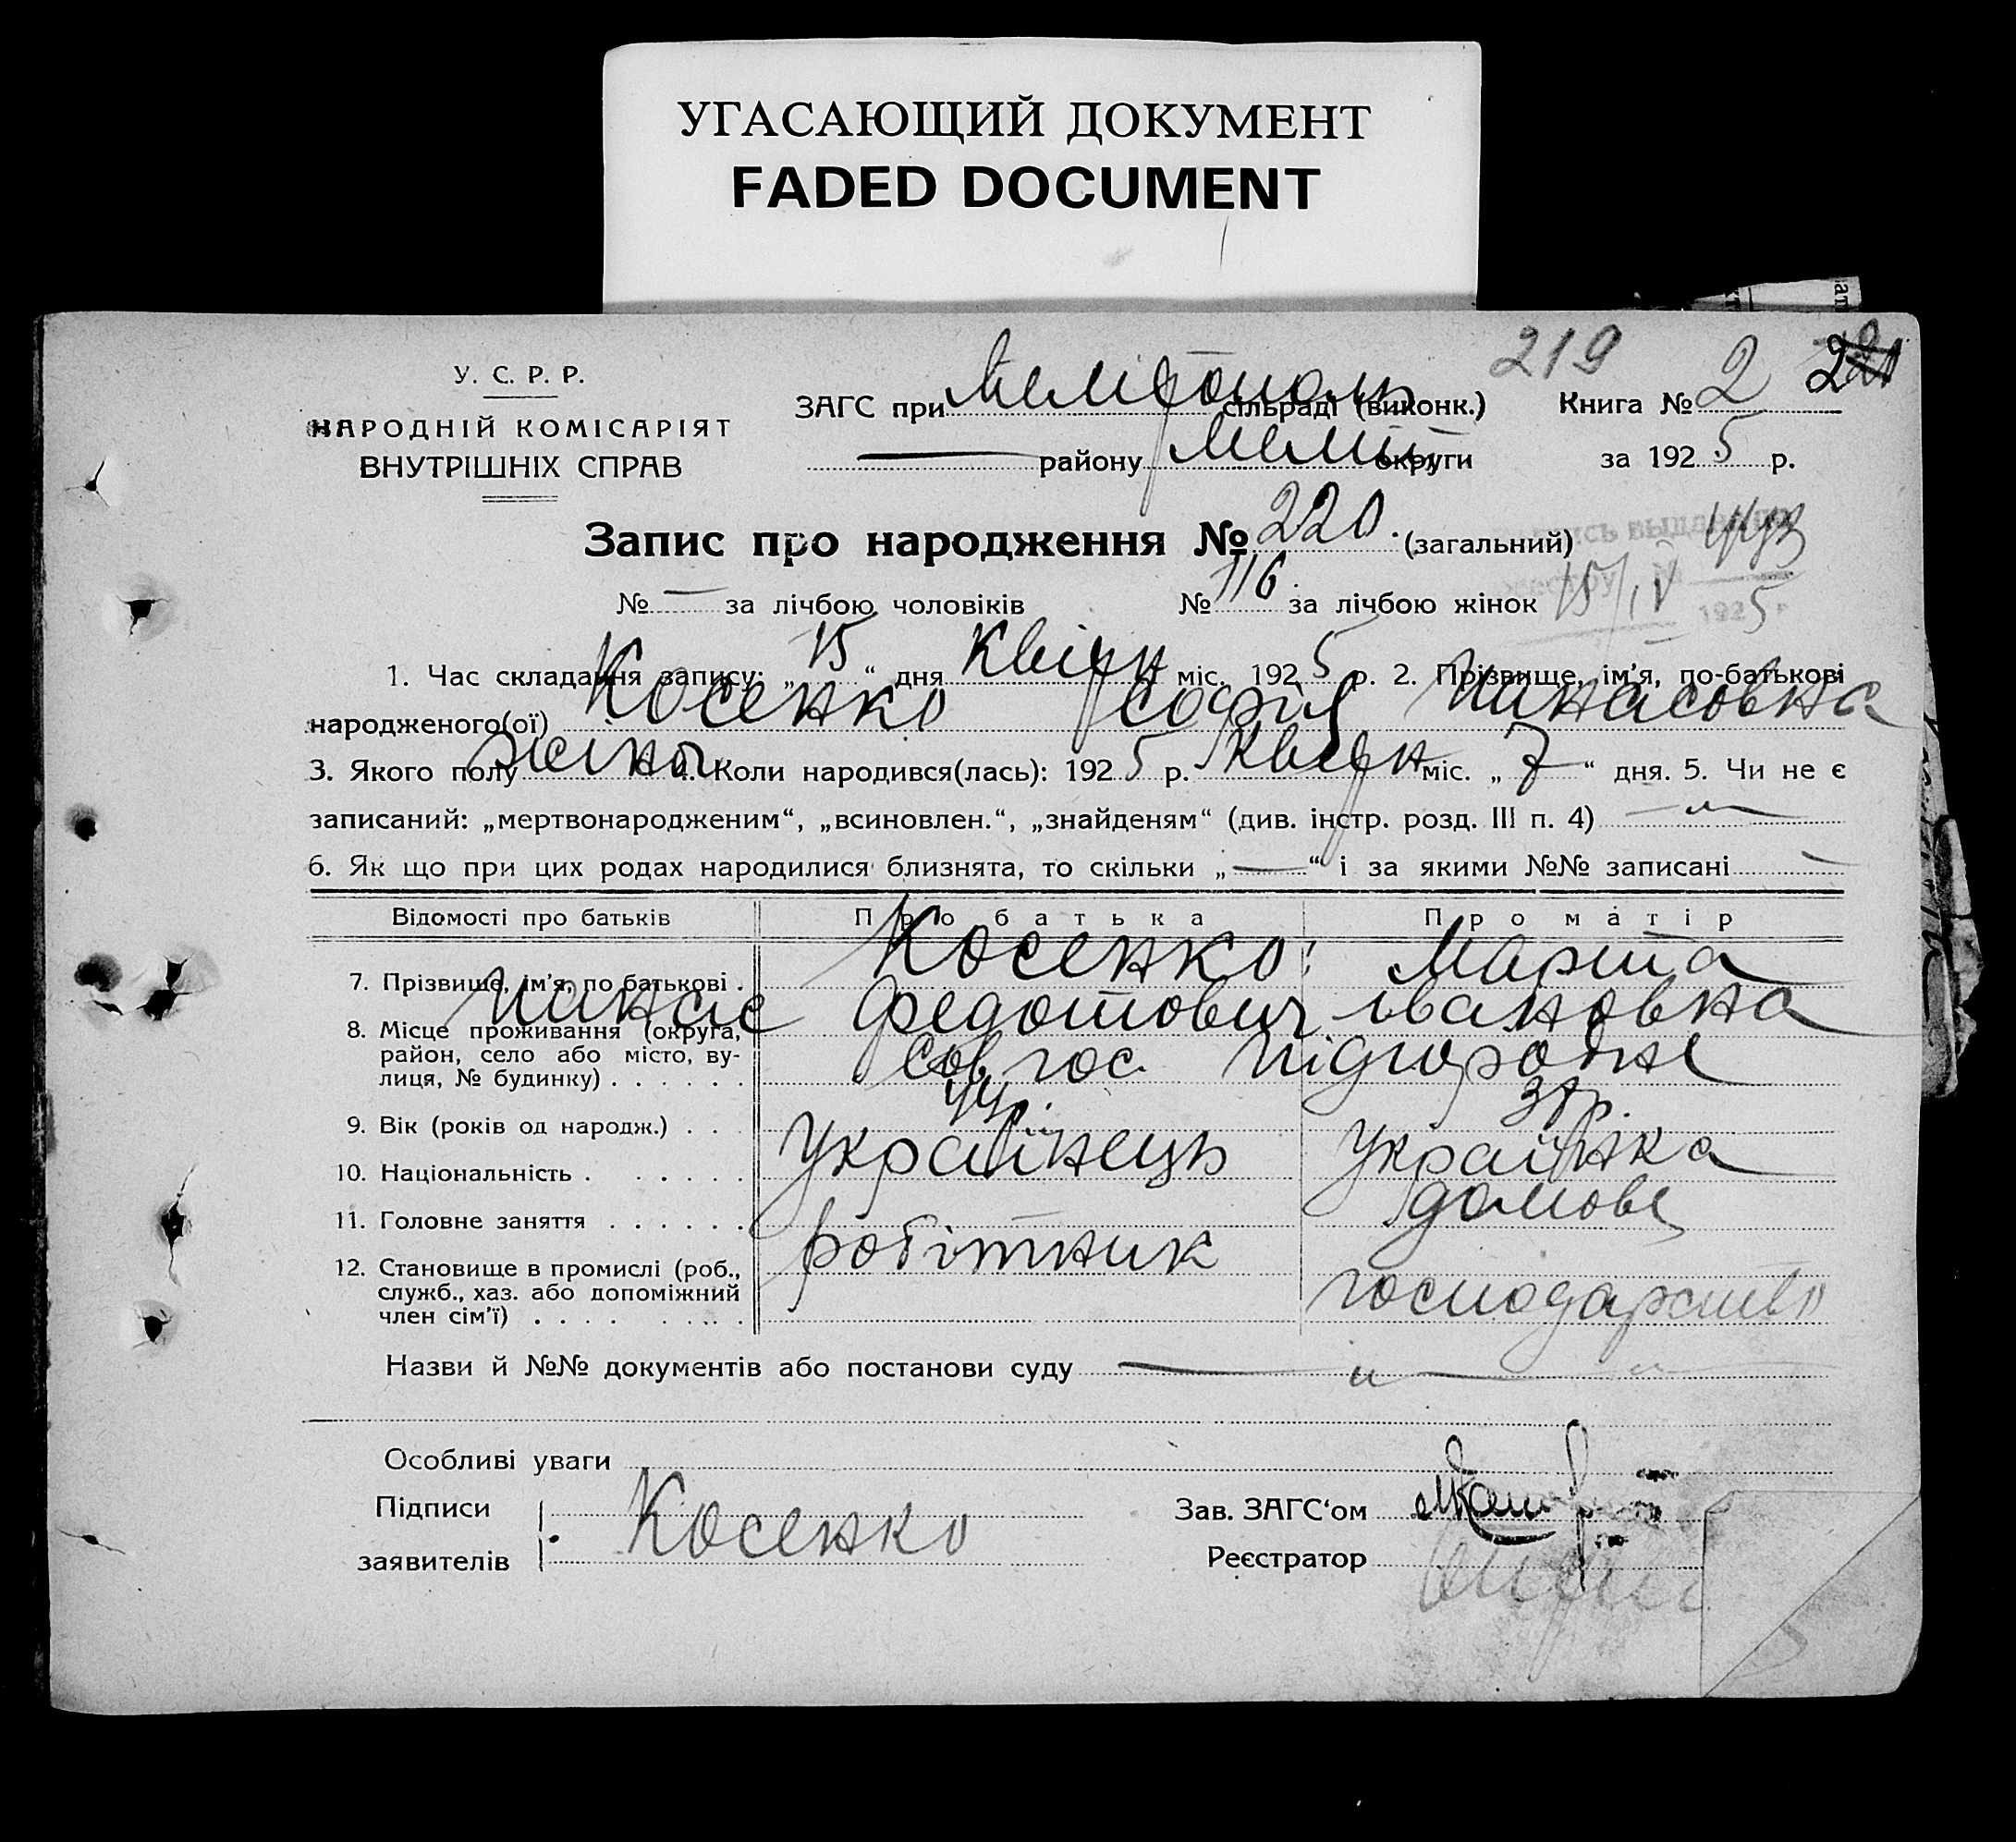 УГАСАЮЩИЙ ДОКУМЕНТ
FADED DOCUMENT
219
2
У. С. Р. Р.
НАРОДНІЙ КОМІСАРІЯТ
ВНУТРІШНІХ СПРАВ
ЗАГС при Мелітополь сільраді (виконк.) Книга № 2
— району Меліт округи за 1925 р.
Запис про народження № 220. (загальний)
№ — за лічбою чоловіків № 116 за лічбою жінок
15/IV 1925 р
1. Час складання запису: „15“ дня Квітн міс. 1925 р. 2. Прізвище, ім'я, по-батькові
народженого(ої) Косенко Софія Панасовна
3. Якого полу жіноч 4. Коли народився(лась): 1925 р. Квітн міс. „7“ дня. 5. Чи не є
записаний: „мертвонародженим“, „всиновлен.“, „знайденям“ (див. інстр. розд. III п. 4) — „ —
6. Як що при цих родах народилися близнята, то скільки „—“ і за якими №№ записані —
Відомості про батьків Про батька Про матір
7. Прізвище, ім'я, по батькові . Косенко Марта
Панас Федотович Івановна
8. Місце проживання (округа,
район, село або місто, ву-
лиця, № будинку) . . . . . . Совгос Підгородне
9. Вік (років од народж.) . . . 44 р. 38 р.
10. Національність . . . . . . Українець Українка
11. Головне заняття . . . . . . робітник домове
12. Становище в промислі (роб.,
служб., хаз. або допоміжний
член сім'ї) . . . . . . . . господарство
Назви й №№ документів або постанови суду — „ — „ —
Особливі уваги
Підписи
заявителів Косенко
Зав. ЗАГС'ом
Реєстратор